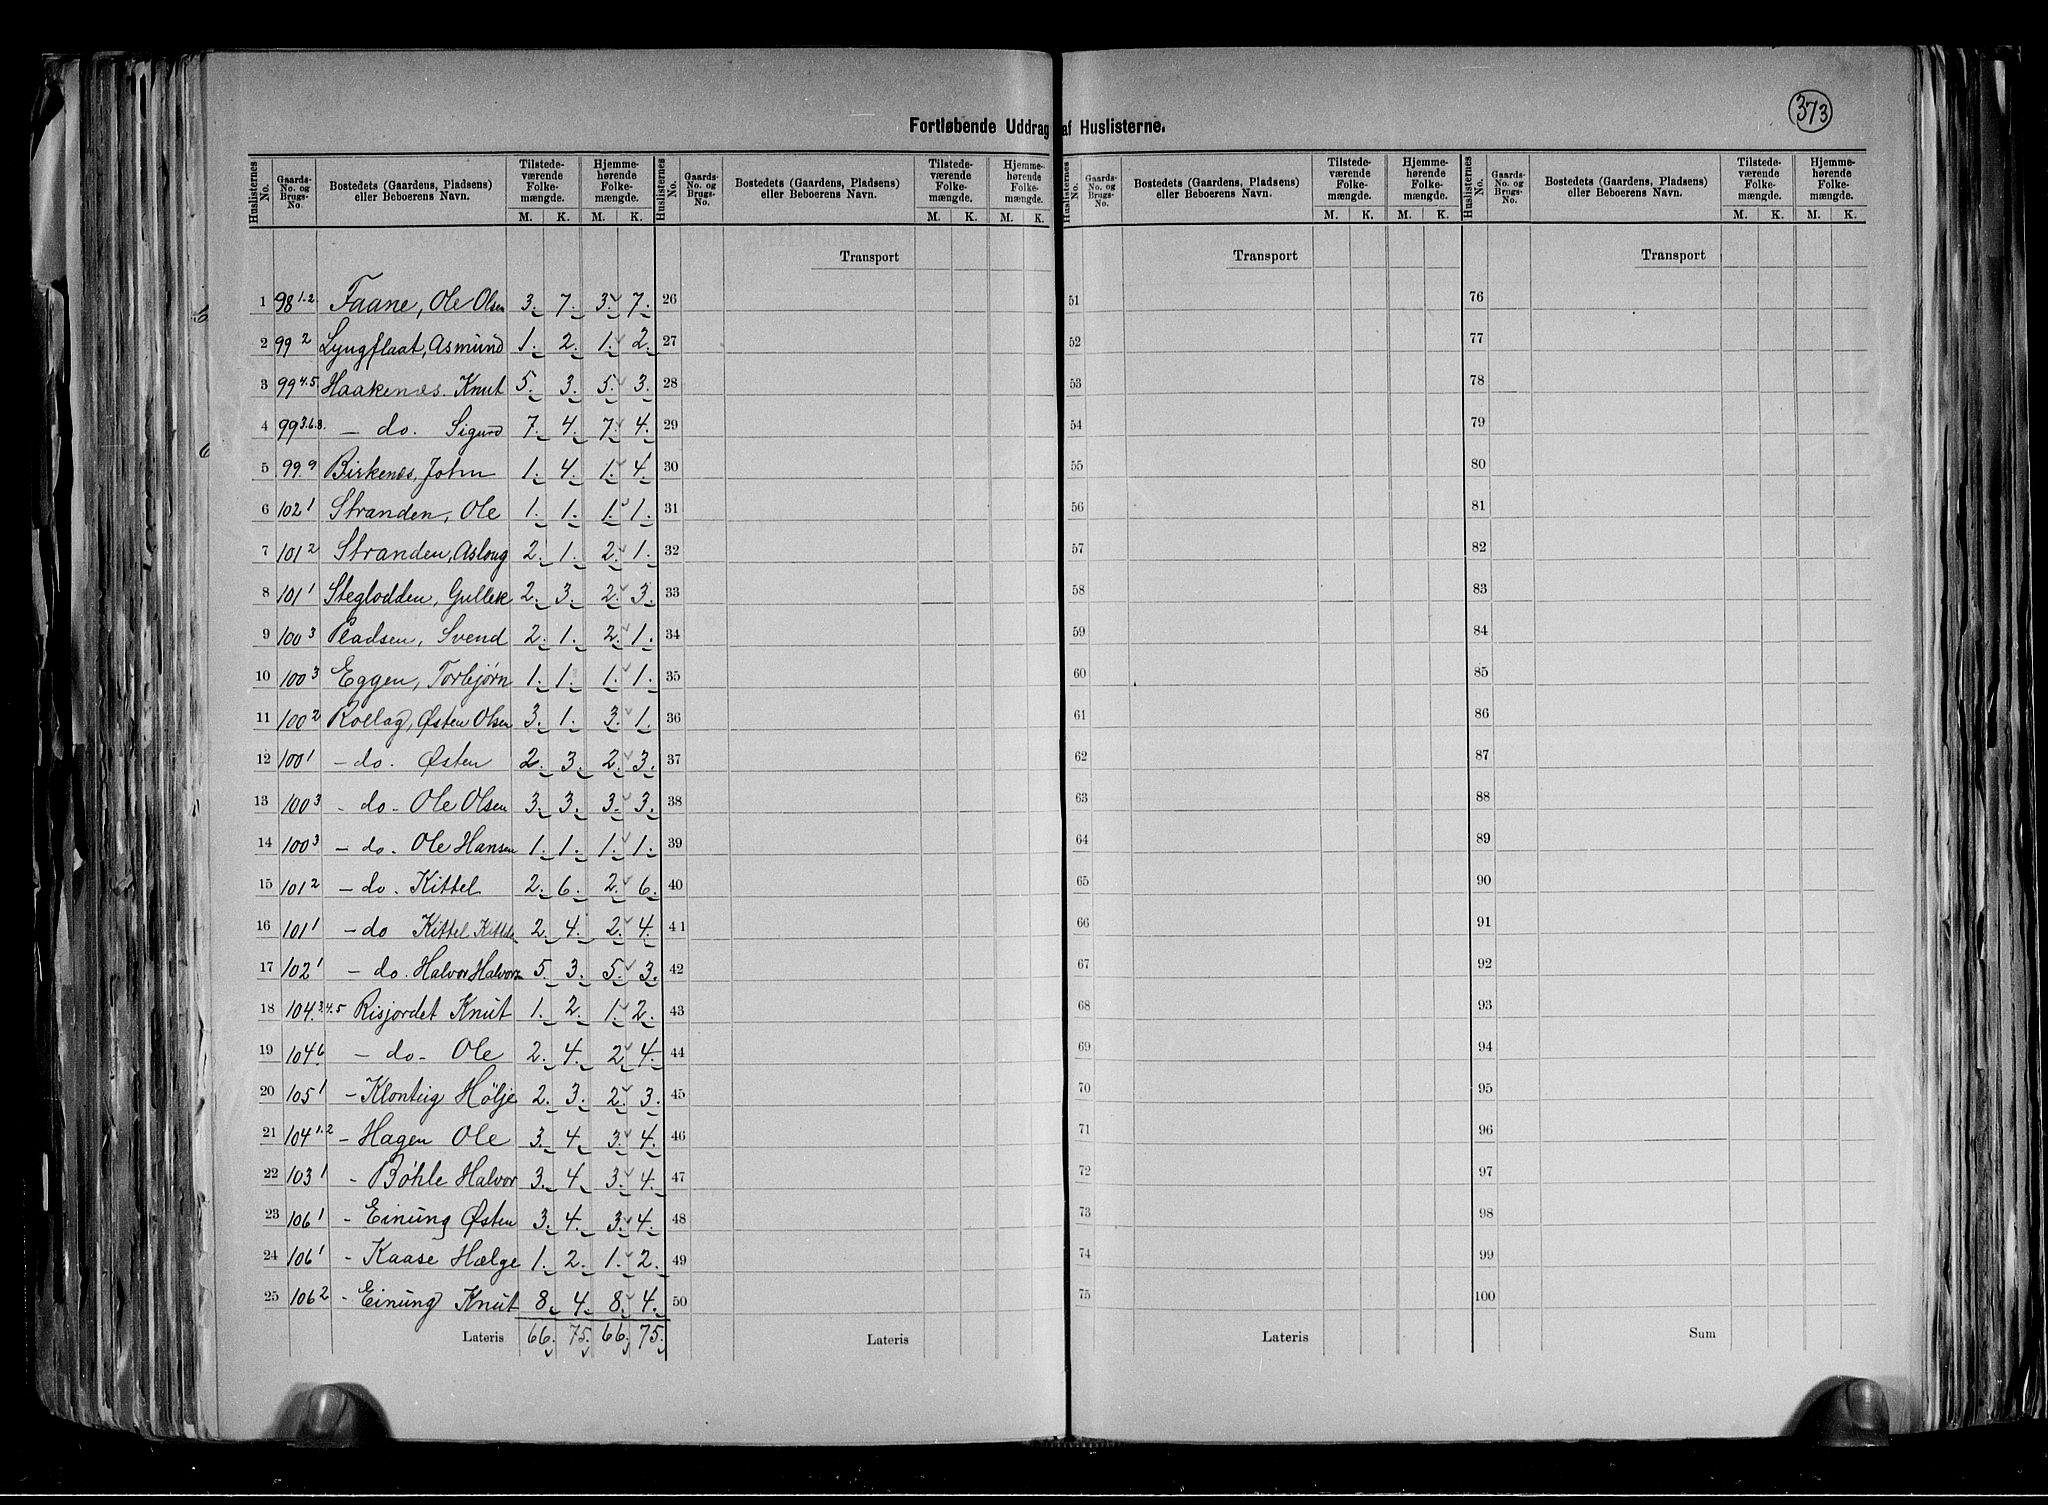 373
Fortløbende Uddrag af Huslisterne.
Huslisternes No. Gaards-No. og Brugs-No. Bostedets (Gaardens, Pladsens) eller Beboerens Navn. Tilstedeværende Folkemængde. M. K. Hjemmehørende Folkemængde. M. K.
Huslisternes No. Gaards-No. og Brugs-No. Bostedets (Gaardens, Pladsens) eller Beboerens Navn. Tilstedeværende Folkemængde. M. K. Hjemmehørende Folkemængde. M. K.
Huslisternes No. Gaards-No. og Brugs-No. Bostedets (Gaardens, Pladsens) eller Beboerens Navn. Tilstedeværende Folkemængde. M. K. Hjemmehørende Folkemængde. M. K.
Huslisternes No. Gaards-No. og Brugs-No. Bostedets (Gaardens, Pladsens) eller Beboerens Navn. Tilstedeværende Folkemængde. M. K. Hjemmehørende Folkemængde. M. K.
Transport Transport Transport
1 98 1.2. Faane, Ole Olsen 3. 7. 3. 7. 26 51 76
2 99 2 Lyngflaat, Asmund 1. 2. 1. 2. 27 52 77
3 99 4.5. Haakenæs. Knut 5. 3. 5. 3. 28 53 78
4 99 3.6.8. - do. Sigurd 7. 4. 7. 4. 29 54 79
5 99. 9 Birkenæs, John 1. 4. 1. 4. 30 55 80
6 102 1 Stranden, Ole 1. 1. 1. 1. 31 56 81
7 101 2 Stranden, Aslaug 2. 1. 2. 1. 32 57 82
8 101 1 Steglodden, Gullek 2. 3. 2. 3. 33 58 83
9 100 3 Pladsen, Svend 2. 1. 2. 1. 34 59 84
10 100 3 Eggen, Torbjørn 1. 1. 1. 1. 35 60 85
11 100 2 Rollag, Østen Olsen 3. 1. 3. 1. 36 61 86
12 100 1 - do. Østen 2. 3. 2. 3. 37 62 87
13 100 3 - do - Ole Olsen 3. 3. 3. 3. 38 63 88
14 100 3 - do. Ole Hansen 1. 1. 1. 1. 39 64 89
15 101 2 - do. Kittel 2. 6. 2. 6. 40 65 90
16 101 1 - do Kittel 2. 4. 2. 4. 41 66 91
17 102 1 - do. Halvor 5. 3. 5. 3. 42 67 92
18 104. 3.4.5 Risjordet Knut 1. 2. 1. 2. 43 68 93
19 104 6. - do - Ole 2. 4. 2. 4. 44 69 94
20 105 1 - Hølje 2. 3. 2. 3. 45 70 95
21 104 1.2 - Hagen Ole 3. 4. 3. 4. 46 71 96
22 103 1 - Bøhle Halvor 3. 4. 3. 4. 47 72 97
23 106 1 - Einung Østen 3. 4. 3. 4. 48 73 98
24 106 1 - Kaase Hælge 1. 2. 1. 2. 49 74 99
25 106 2 - Einung Knut 8. 4. 8. 4. 50 75 100
Lateris 66. 75. 66. 75. Lateris Lateris Sum